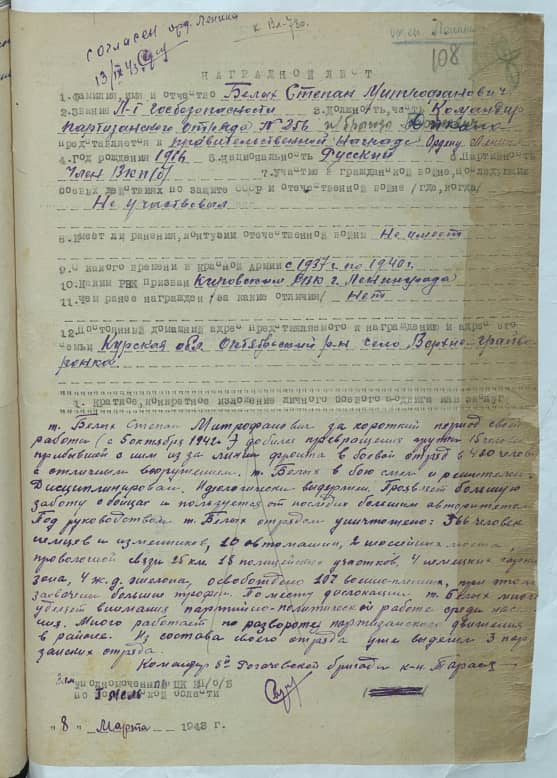 согласен орд. Ленина
13/IX 43г
к Вл-730.
орден Ленина
108
НАГРАДНОЙ ЛИСТ
1.фамилия,имя и отчество Белых Степан Митрофанович
2.Звание Л-т Госбезопасности 3.Должность,часть Командир
партизанского отряда № 256
представляется к правительственной награде Ордену Ленина
4.год рождения 1906 5.национальность Русский 6.партийность
Член ВКП(б) 7.участие в гражданской войне,последующих
боевых действиях по защите СССР и отечественной войне /где,когда/
Не участвовал
8.Имеет ли ранения,контузии отечественной войны Не имеет
9.С какого времени в Красной Армии с 1937г. по 1940г.
10.Каким РВК призван Кировским РВК г. Ленинграда
11.Чем ранее награжден /за какие отличия/ Нет
12.Постоянный домашний адрес представляемого к награждению и адрес его
семьи Курская обл Октябрьский р-н село
1. Краткое,конкретное изложение личного боевого подвига или заслуг
т. Белых Степан Митрофанович за короткий период своей
работы (с 5 октября 1942г.) добился превращения группы 15 человек
прибывшей с ним из за линии фронта в боевой отряд в 420 человек
с отличным вооружением. т. Белых в бою смел и решителен.
Дисциплинирован. Идеологически выдержан. Проявляет большую
заботу о бойцах и пользуется от последних большим авторитетом.
Под руководством т. Белых отрядом уничтожено: 366 человек
немцев и изменников, 20 автомашин, 2 шоссейных моста,
проволочной связи 25 км. 15 полицейских участков, 4 немецких гарни-
зона, 4 ж.д. эшелона, освобождено 107 военно-пленных, при этом
захвачены большие трофеи. По месту дислокации т. Белых много
уделяет внимания партийно-политической работе среди насе-
ния. Много работает по развороту партизанского движения
в районе. Из состава своего отряда уже выделил 3 пар-
занских отряда.
Командир 8й Рогачевской бригады к-н. Тарасов
Зам Уполномоченный ЦК КП/б/Б
по Гомельской области
"8" Марта 1943 г.